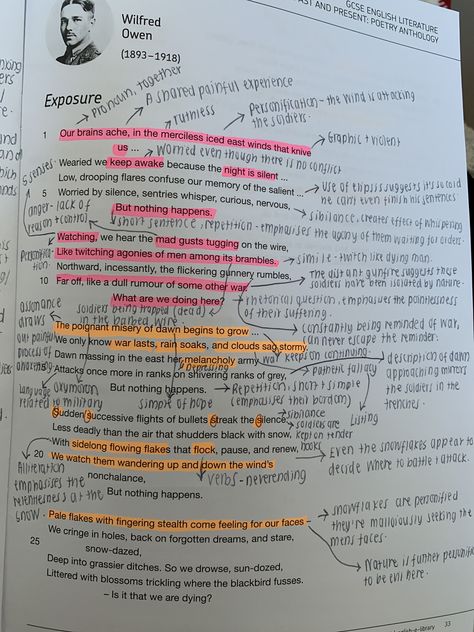 GCSE ENGLISH LITERATURE
PAST AND PRESENT: POETRY ANTHOLOGY
Wilfred
Owen
(1893–1918)
Exposure
Pronoun, together
A shared painful experience
ruthless
Personification - the wind is attacking
the soldiers.
1 Our brains ache, in the merciless iced east winds that knive
us ...
Graphic + violent
Worried even though there is no conflict
5 senses
Wearied we keep awake because the night is silent ...
Low, drooping flares confuse our memory of the salient ...
Use of elipsis suggests it's so cold
he can't even finish his sentences.
5 Worried by silence, sentries whisper, curious, nervous,
sibilance, creates effect of whispering
anger - lack of
reason + control
But nothing happens.
short sentence, repetition - emphasises the agony of them waiting for orders.
Watching, we hear the mad gusts tugging on the wire,
Like twitching agonies of men among its brambles.
simile - twitch like dying man.
Northward, incessantly, the flickering gunnery rumbles,
The distant gunfire suggests these
soldiers have been isolated by nature.
10 Far off, like a dull rumour of some other war.
What are we doing here?
rhetorical question, emphasises the pointlessness
of their suffering.
soldiers being trapped (dead)
in the barbed wire
assonance
draws
out painful
process of
The poignant misery of dawn begins to grow ...
constantly being reminded of war,
can never escape the reminder.
We only know war lasts, rain soaks, and clouds sag stormy.
war keeps on continuing.
Dawn massing in the east her melancholy army
Depressing
pathetic fallacy
description of dawn
approaching mirrors
the soldiers in the
trenches.
Attacks once more in ranks on shivering ranks of grey,
But nothing happens.
Repetition, short + simple
(emphasises their boredom)
Language
related to military
oxymoron
simple of hope
Sudden successive flights of bullets streak the silence.
sibinance
soldiers are
kept on tender
hooks
Listing
Less deadly than the air that shudders black with snow,
With sidelong flowing flakes that flock, pause, and renew,
20 We watch them wandering up and down the wind's
nonchalance,
Even the snowflakes appear to
decide where to battle + attack.
verbs - neverending
Alliteration
emphasises the
relentlessness of the
snow.
But nothing happens.
Pale flakes with fingering stealth come feeling for our faces –
snowflakes are personified
they're maliciously seeking the
mens faces.
We cringe in holes, back on forgotten dreams, and stare,
snow-dazed,
25
Deep into grassier ditches. So we drowse, sun-dozed,
Nature is further personified
to be evil here.
Littered with blossoms trickling where the blackbird fusses.
– Is it that we are dying?
33